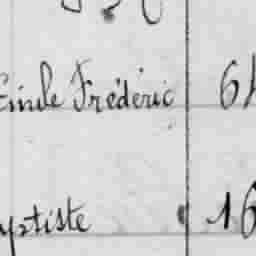 Emile Frédéric 6
yptiste 16